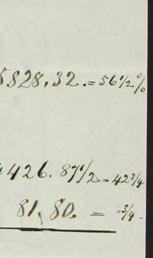 5828.32. = 56 1/2 %
4426. 87 1/2 - 42 3/4
81,80 = - 3/4 -